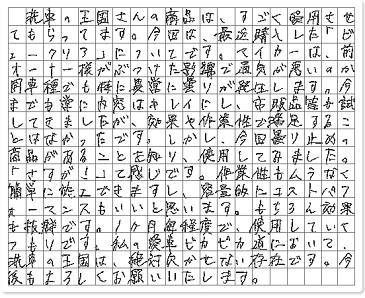 洗車の王国さんの商品は、すごく愛用させ
てもらってます。今回は、最近購入した「ビ
ュークリア」についてです。メイカーは、前
オーナー様がぶつけた影響で通気が悪いのか
同車種でも特に異常に曇りが発生します。今
までも常に内窓はキレイにし、市販品等も試
してきましたが、効果や作業性で満足するこ
とはなかったです。しかし、今回曇り止めの
商品があることを知り、使用してみました。
「さすが！」って感じです。作業性もムラなく
簡単に施工できますし、容量的にコストパフ
ォーマンスもいいと思います。もちろん効果
も抜群です。1ヶ月間程度で、使用していく
つもりです。私の愛車ピカピカ道において、
洗車の王国は、絶対欠かせない存在です。今
後もよろしくお願いいたします。